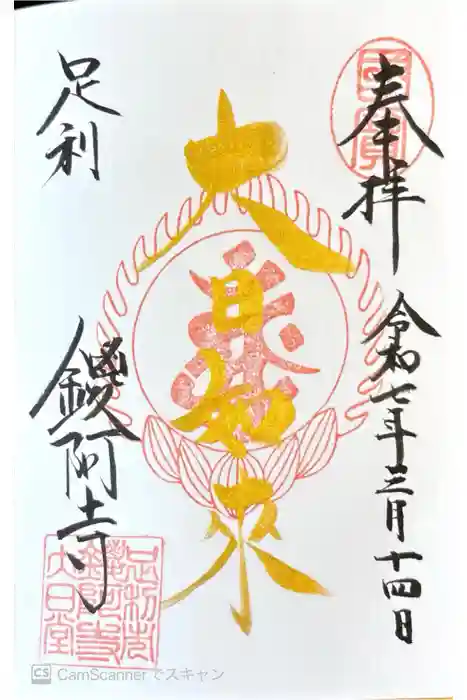 國寳
奉拝
令和七年三月十四日
大日如来
足利
鑁阿寺
足利市
鑁阿寺
大日堂
CS CamScannerでスキャン